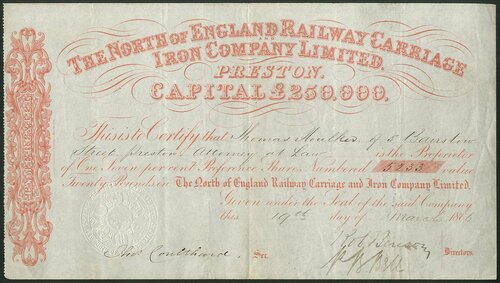 THE NORTH OF ENGLAND RAILWAY CARRIAGE
& IRON COMPANY LIMITED.
PRESTON.
CAPITAL £250,000.
This is to Certify that Thomas Houlker of 5 Bairstow
Street, Preston, Attorney at Law is the Proprietor
of One Seven per cent Preference Share, Numbered 5253 value
Twenty Pounds in The North of England Railway Carriage and Iron Company Limited.
Given under the Seal of the said Company
this 19th day of March 186
Coulthard Sec.
Directors.